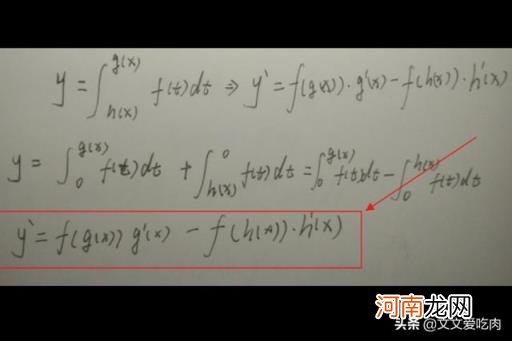 y = ∫_{h(x)}^{g(x)} f(t)dt ⇒ y' = f(g(x))·g'(x) - f(h(x))·h'(x)
y = ∫_0^{g(x)} f(t)dt + ∫_{h(x)}^0 f(t)dt = ∫_0^{g(x)} f(t)dt - ∫_0^{h(x)} f(t)dt
y' = f(g(x)) g'(x) - f(h(x))·h'(x)
河南龙网
头条 @文文爱吃肉